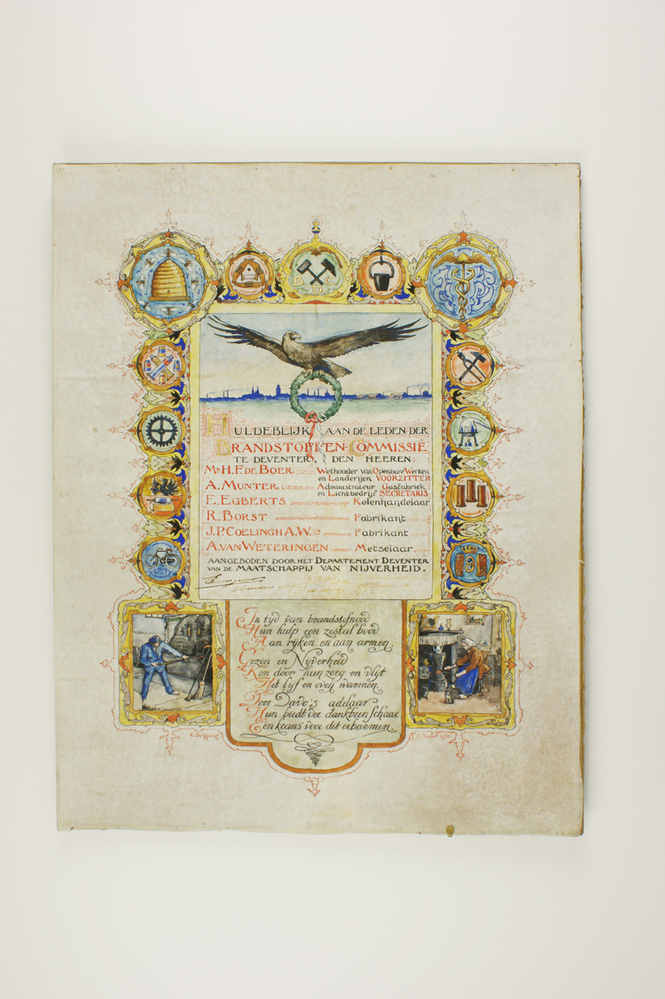 HULDEBLIJK AAN DE LEDEN DER
BRANDSTOFFEN-COMMISSIE
TE DEVENTER, DEN HEEREN:
Mr. H.F. DE BOER Wethouder van Openbare Werken
en Landerijen VOORZITTER
A. MUNTER Administrateur Gasfabriek
en Lichtbedrijf SECRETARIS
E. EGBERTS Kolenhandelaar
R. BORST Fabrikant
J.P. COELINGH A.W. Fabrikant
A. VAN WETERINGEN Metselaar
AANGEBODEN DOOR HET DEPARTEMENT DEVENTER
VAN DE MAATSCHAPPIJ VAN NIJVERHEID.
In tijd van brandstofnood
Hun hulp een zestal bood
Aan rijken en aan armen
Gezin en Nijverheid
Kon door hun zorg en vlijt
Het lijf en oven warmen
Door Davo's adelaar
Hun biedt dee dankb're schaar
Een krans voor dit erbarmen.